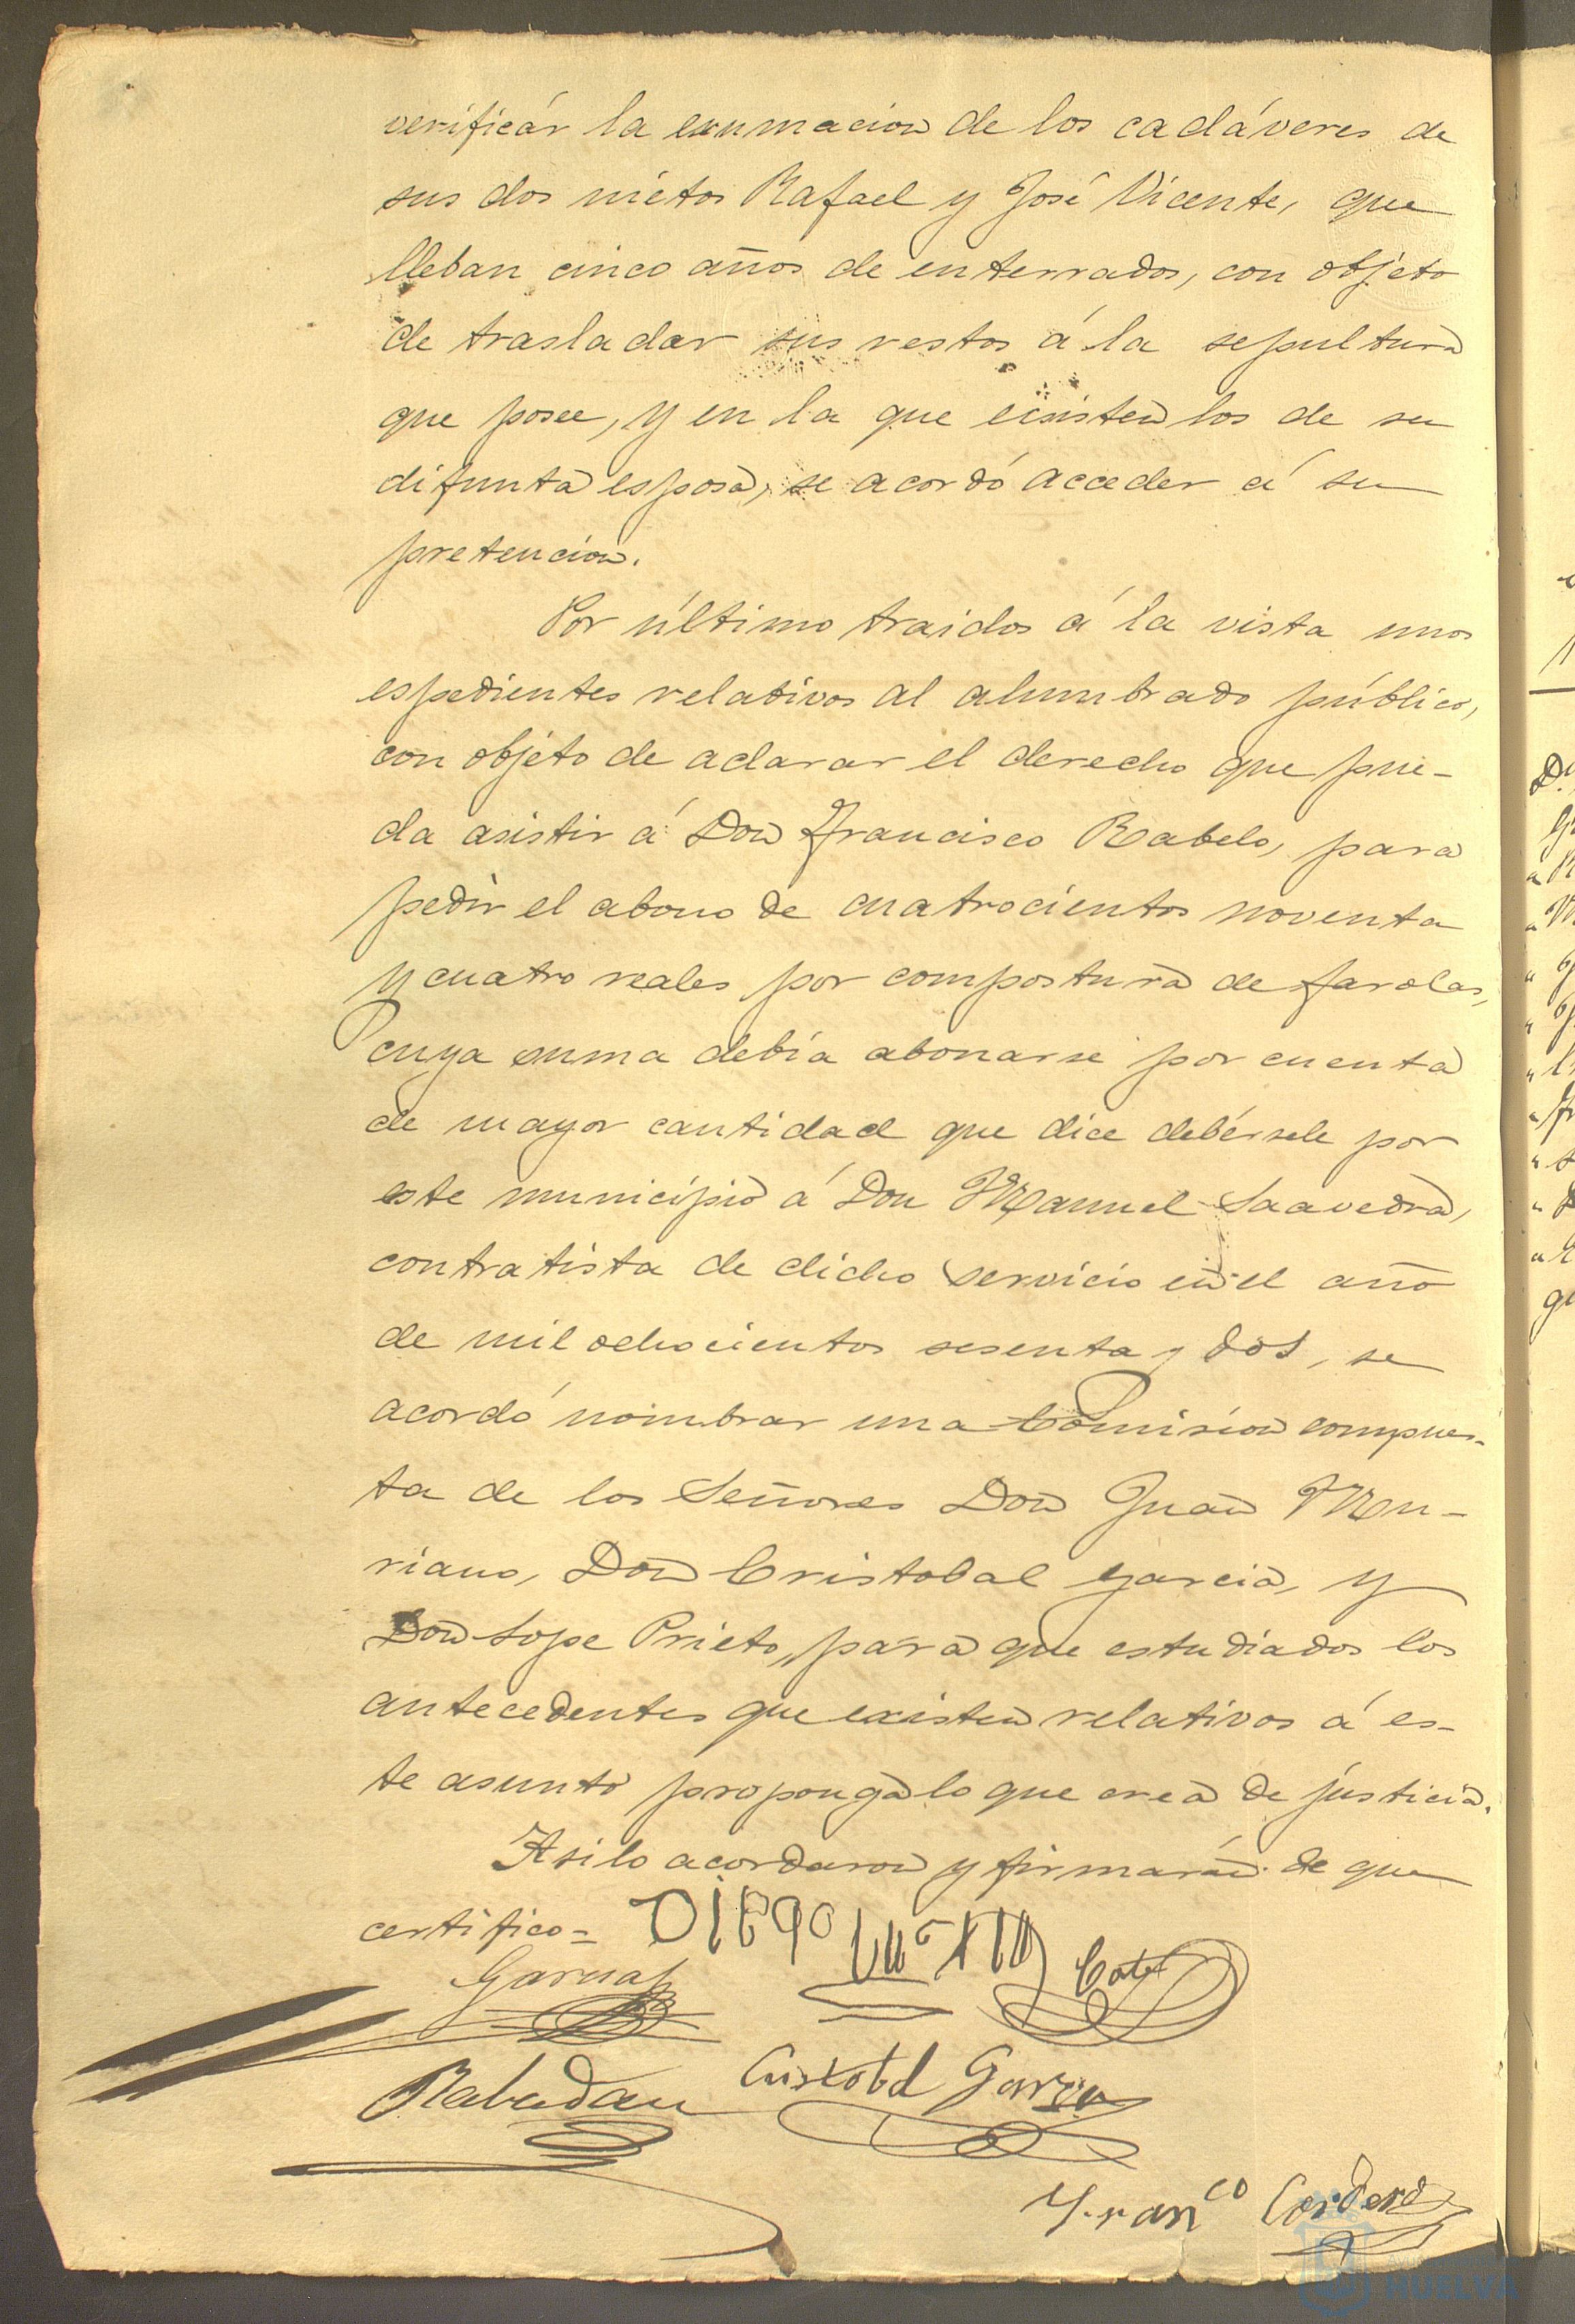 verificár la exumacion de los cadáveres de
sus dos niétos Rafael y José Vicente, que
lleban cinco años de enterrados, con objeto
de trasladar sus restos á la sepultura
que posee, y en la que ecsisten los de su
difunta esposa, se acordó acceder á su
pretencion.
Por último traidos á la vista unos
espedientes relativos al alumbrado público,
con objéto de aclarar el derecho que pue-
da asistir á Don Francisco Rabelo, para
pedir el abono de cuatrocientos noventa
y cuatro reales por compostura de farolas,
cuya suma debia abonarse por cuenta
de mayor cantidad que dice debérsele por
este municipio á Don Manuel Saavedra,
contratista de dicho servicio en el año
de mil ochocientos sesenta y dos, se
acordó nombrar una Comision compues-
ta de los Señores Don Juan Mu-
riano, Don Cristobal Garcia, y
Don Lope Prieto, para que estudiados los
antecedentes que existen relativos á es-
te asunto proponga lo que crea de justicia.
Asi lo acordaron y firmarán de que
certifico=
DIEGO
Garcia
Rabadan
Cristobal Garcia
Franco Cordero
HUELVA